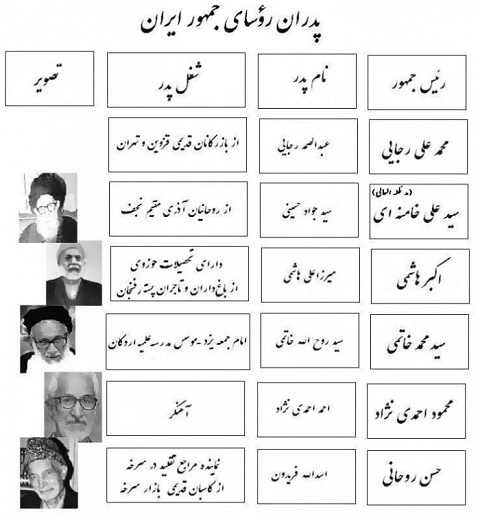 پدران رؤسای جمهور ایران
رئیس جمهور نام پدر شغل پدر تصویر
محمد علی رجایی عبدالصمد رجایی از بازرگانان قدیمی قزوین و تهران
(مد ظله العالی)
سید علی خامنه ای سید جواد حسینی از روحانیان آذری مقیم نجف
اکبر هاشمی میرزا علی هاشمی دارای تحصیلات حوزوی
از باغ‌داران و تاجران پسته رفسنجان
سید محمد خاتمی سید روح الله خاتمی امام جمعه یزد - موسس مدرسه علمیه اردکان
محمود احمدی نژاد احمد احمدی نژاد آهنگر
حسن روحانی اسدالله فریدون نماینده مراجع تقلید در سرخه
از کاسبان قدیمی بازار سرخه